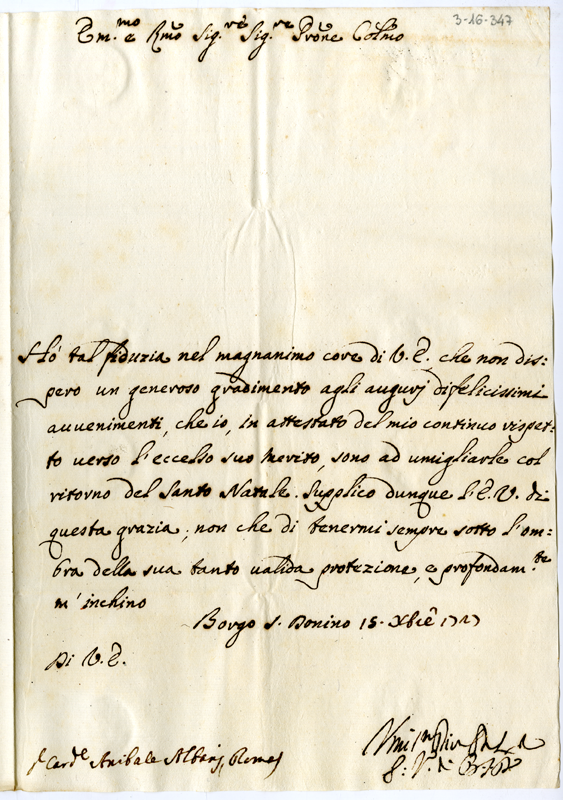 3-16-347
Em.mo e Rmo Sig.re Sig.re Prõne Colmo
Hò tal fiduzia nel magnanimo core di V. E. che non dis=
pero un generoso gradimento agli augurj di felicissimi
auuenimenti, che io, in attestato del mio continuo rispet=
to verso l'eccelso suo merito, sono ad umigliarle col
ritorno del Santo Natale. Supplico dunque l'E. V. di
questa grazia, non che di tenermi sempre sotto l'om=
bra della sua tanto ualida protezione, e profondam.te
m'inchino
Borgo S. Donino 15. Xbre 1727
Di V. E.
Card.e Anibale Albani, Roma